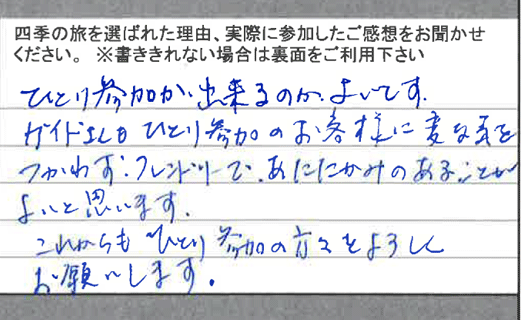 四季の旅を選ばれた理由、実際に参加したご感想をお聞かせ
ください。 ※書ききれない場合は裏面をご利用下さい
ひとり参加が出来るのが、よいです。
ガイドさんもひとり参加のお客様に変な気を
つかわず、フレンドリーで、あたたかみのあることが
よいと思います。
これからもひとり参加の方々をよろしく
お願いします。